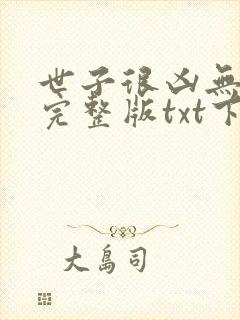 世子很凶無
完整版txt下
大島司